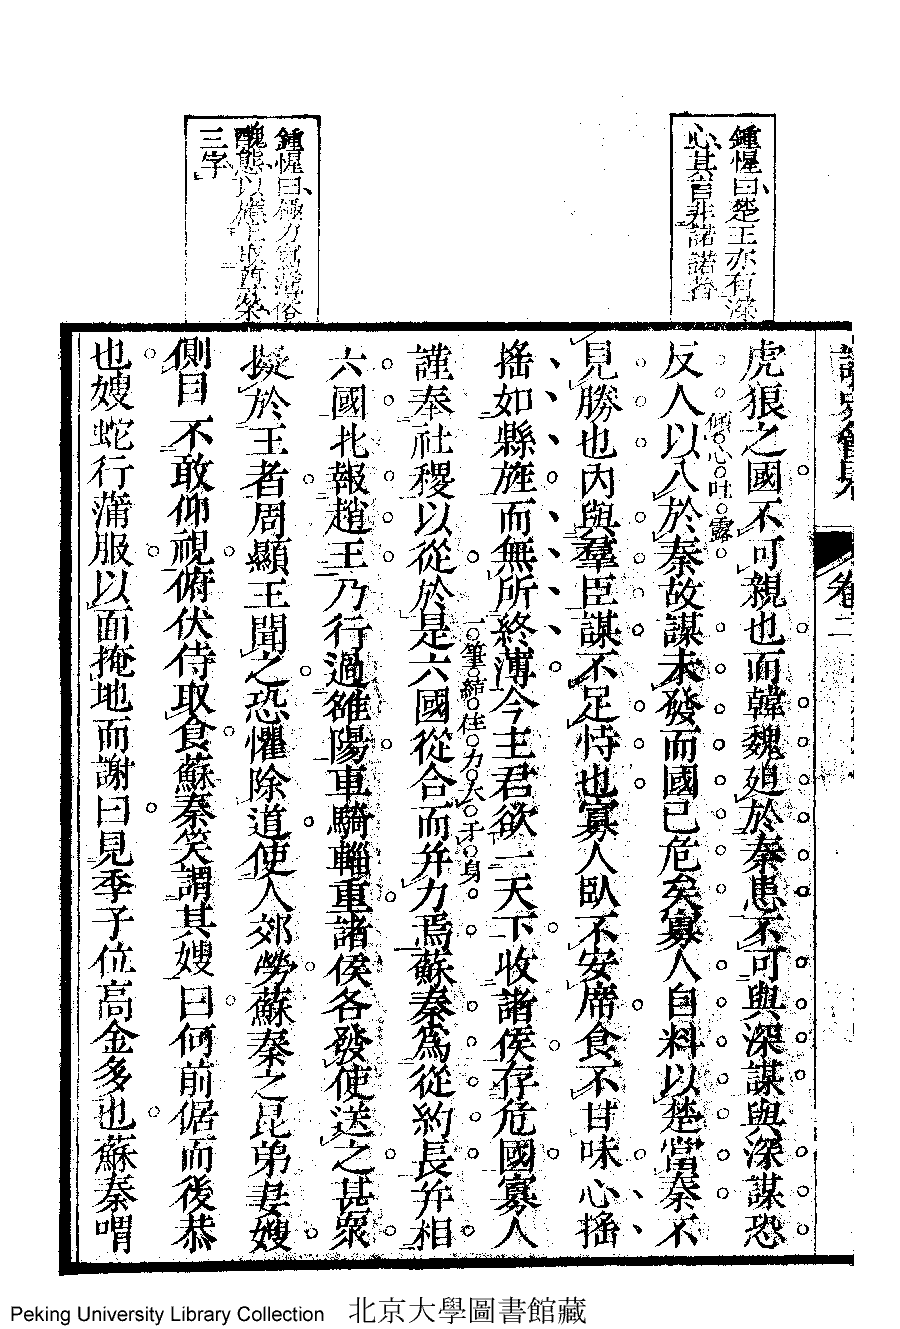 鍾惺曰楚王亦有深
心其言非諾諾者
虎狼之國不可親也而韓魏廹於秦患不可與深謀與深謀恐
傾心吐露
反人以入於秦故謀未發而國已危矣寡人自料以楚當秦不
見勝也內與羣臣謀不足恃也寡人臥不安席食不甘味心搖
搖如縣旌而無所終薄今主君欲一天下收諸侯存危國寡人
一筆結住力大于身
謹奉社稷以從於是六國從合而幷力焉蘇秦為從約長幷相
六國北報趙王乃行過雒陽車騎輜重諸侯各發使送之甚衆
擬於王者周顯王聞之恐懼除道使人郊勞蘇秦之昆弟妻嫂
鍾惺曰極力寫
醜態以應
三字
側目不敢仰視俯伏侍取食蘇秦笑謂其嫂曰何前倨而後恭
也嫂蛇行蒲服以面掩地而謝曰見季子位高金多也蘇秦喟
卷二
Peking University Library Collection 北京大學圖書館藏